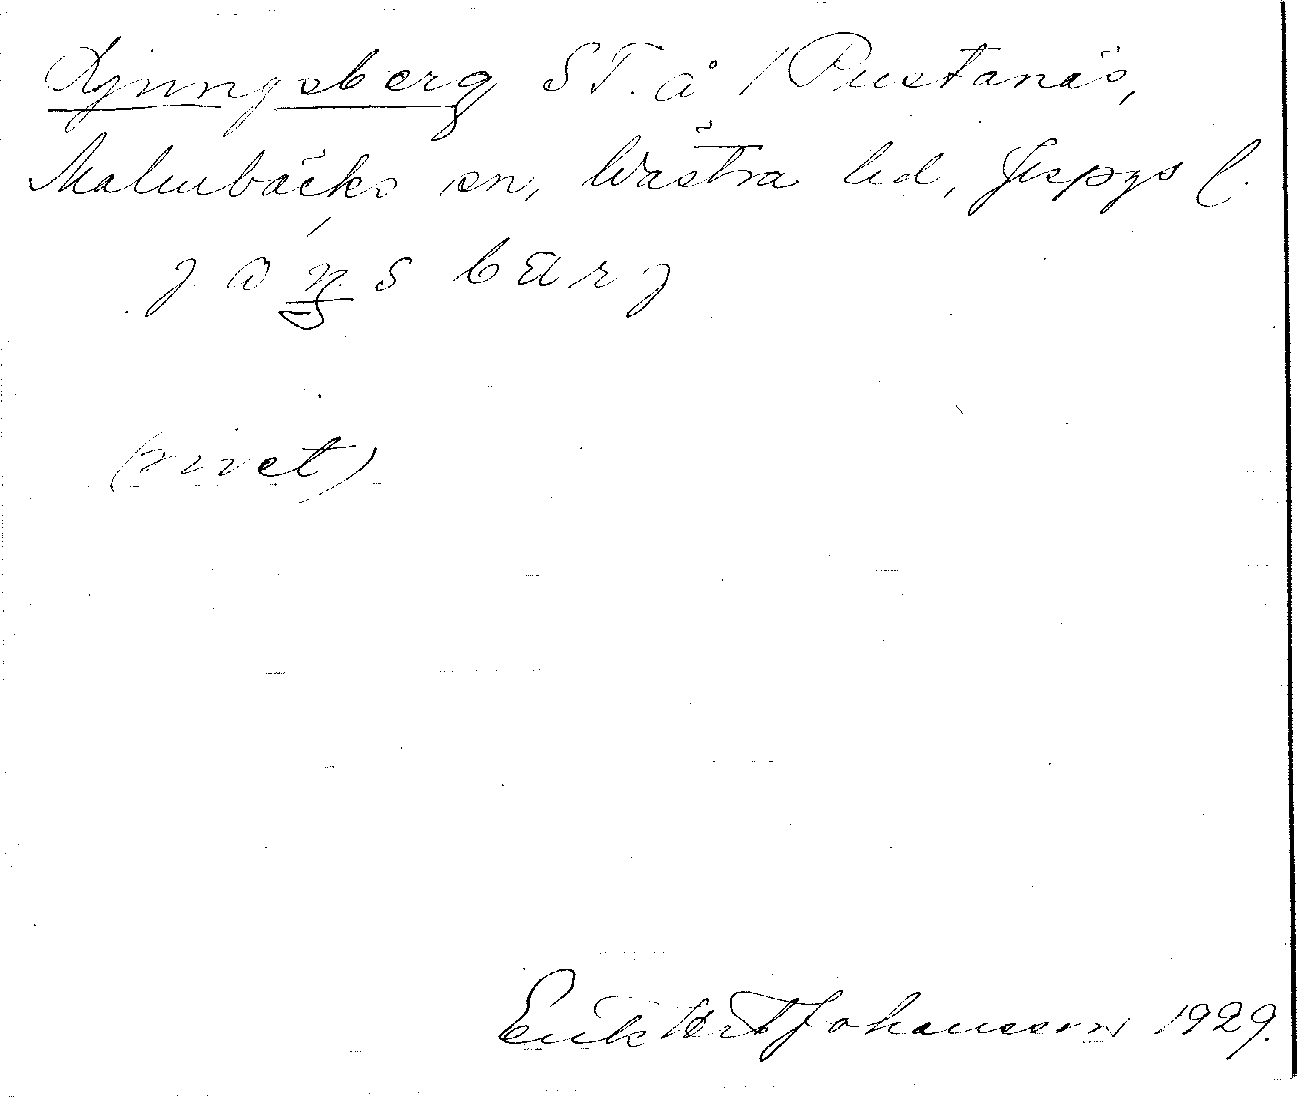 Ljungsberg ST. å / Pustanäs,
Malmbäcks sn, Västra hd, Jkpgs l.
(rivet)
Erik Hert Johansson 1929.